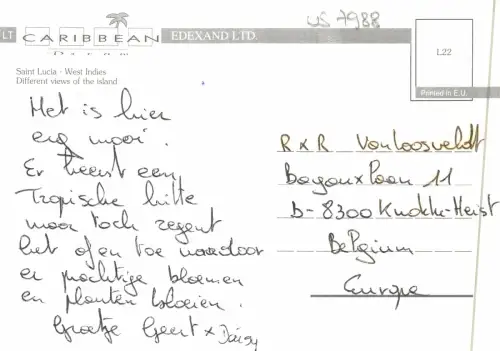 US 7988
LT CARIBBEAN EDEXAND LTD.
Dream
L22
Printed in E.U.
Saint Lucia - West Indies
Different views of the island
Het is hier
erg mooi.
Er heerst een
Tropische hitte
maar toch regent
het af en toe waardoor
er prachtige bloemen
en planten bloeien.
Groetje Geert x Daisy
R x R Vanloosveldt
11
B-8300 Knokke-Heist
Belgium
Europe